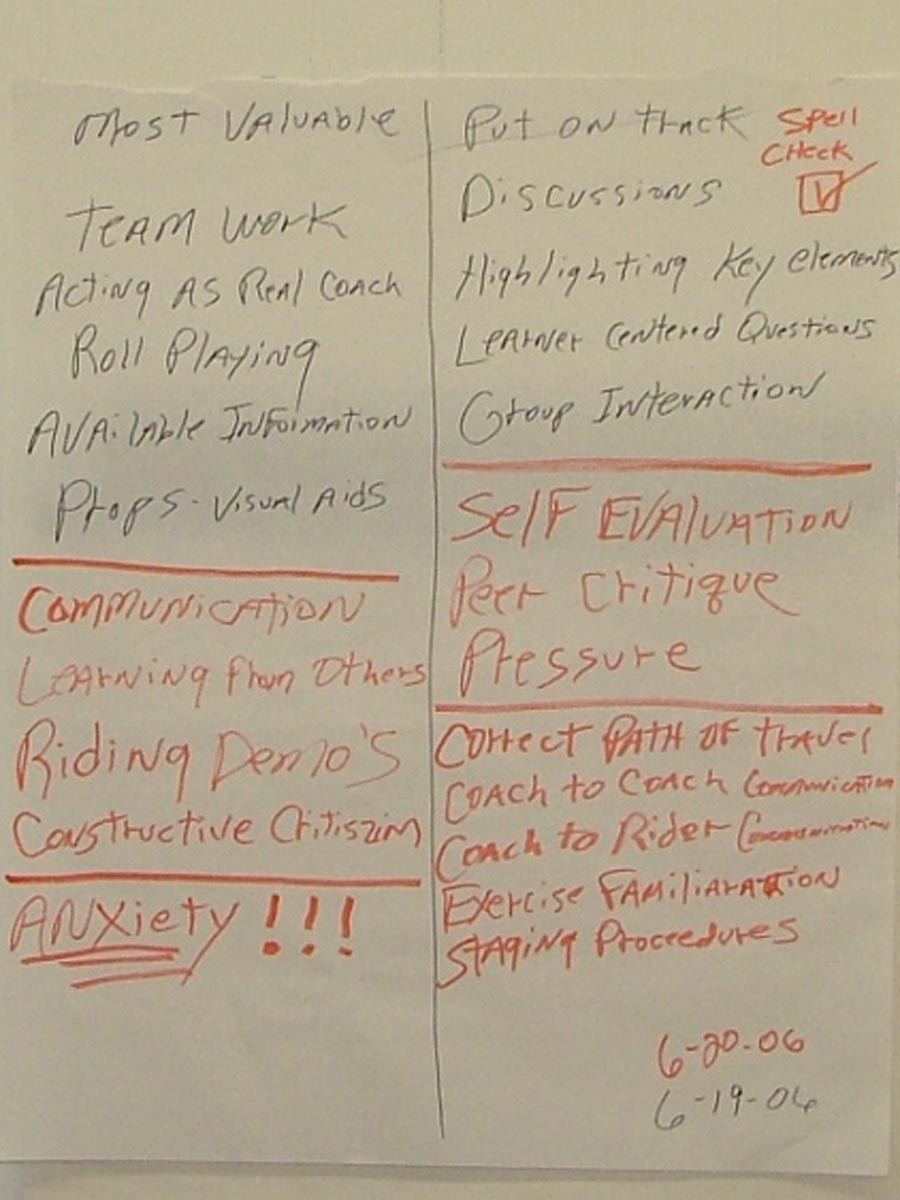 Most Valuable
Team Work
Acting As Real Coach
Roll Playing
Available Information
Props - Visual Aids
Communication
Learning From Others
Riding Demo's
Constructive Critiszim
Anxiety !!!
Put on track
Spell
Check
Discussions
Highlighting Key elements
Learner Centered Questions
Group Interaction
Self Evaluation
Peer Critique
Pressure
Correct Path of travel
Coach to Coach Communication
Coach to Rider Communication
Exercise Familiaration
Staging Proceedures
6-20-06
6-19-06